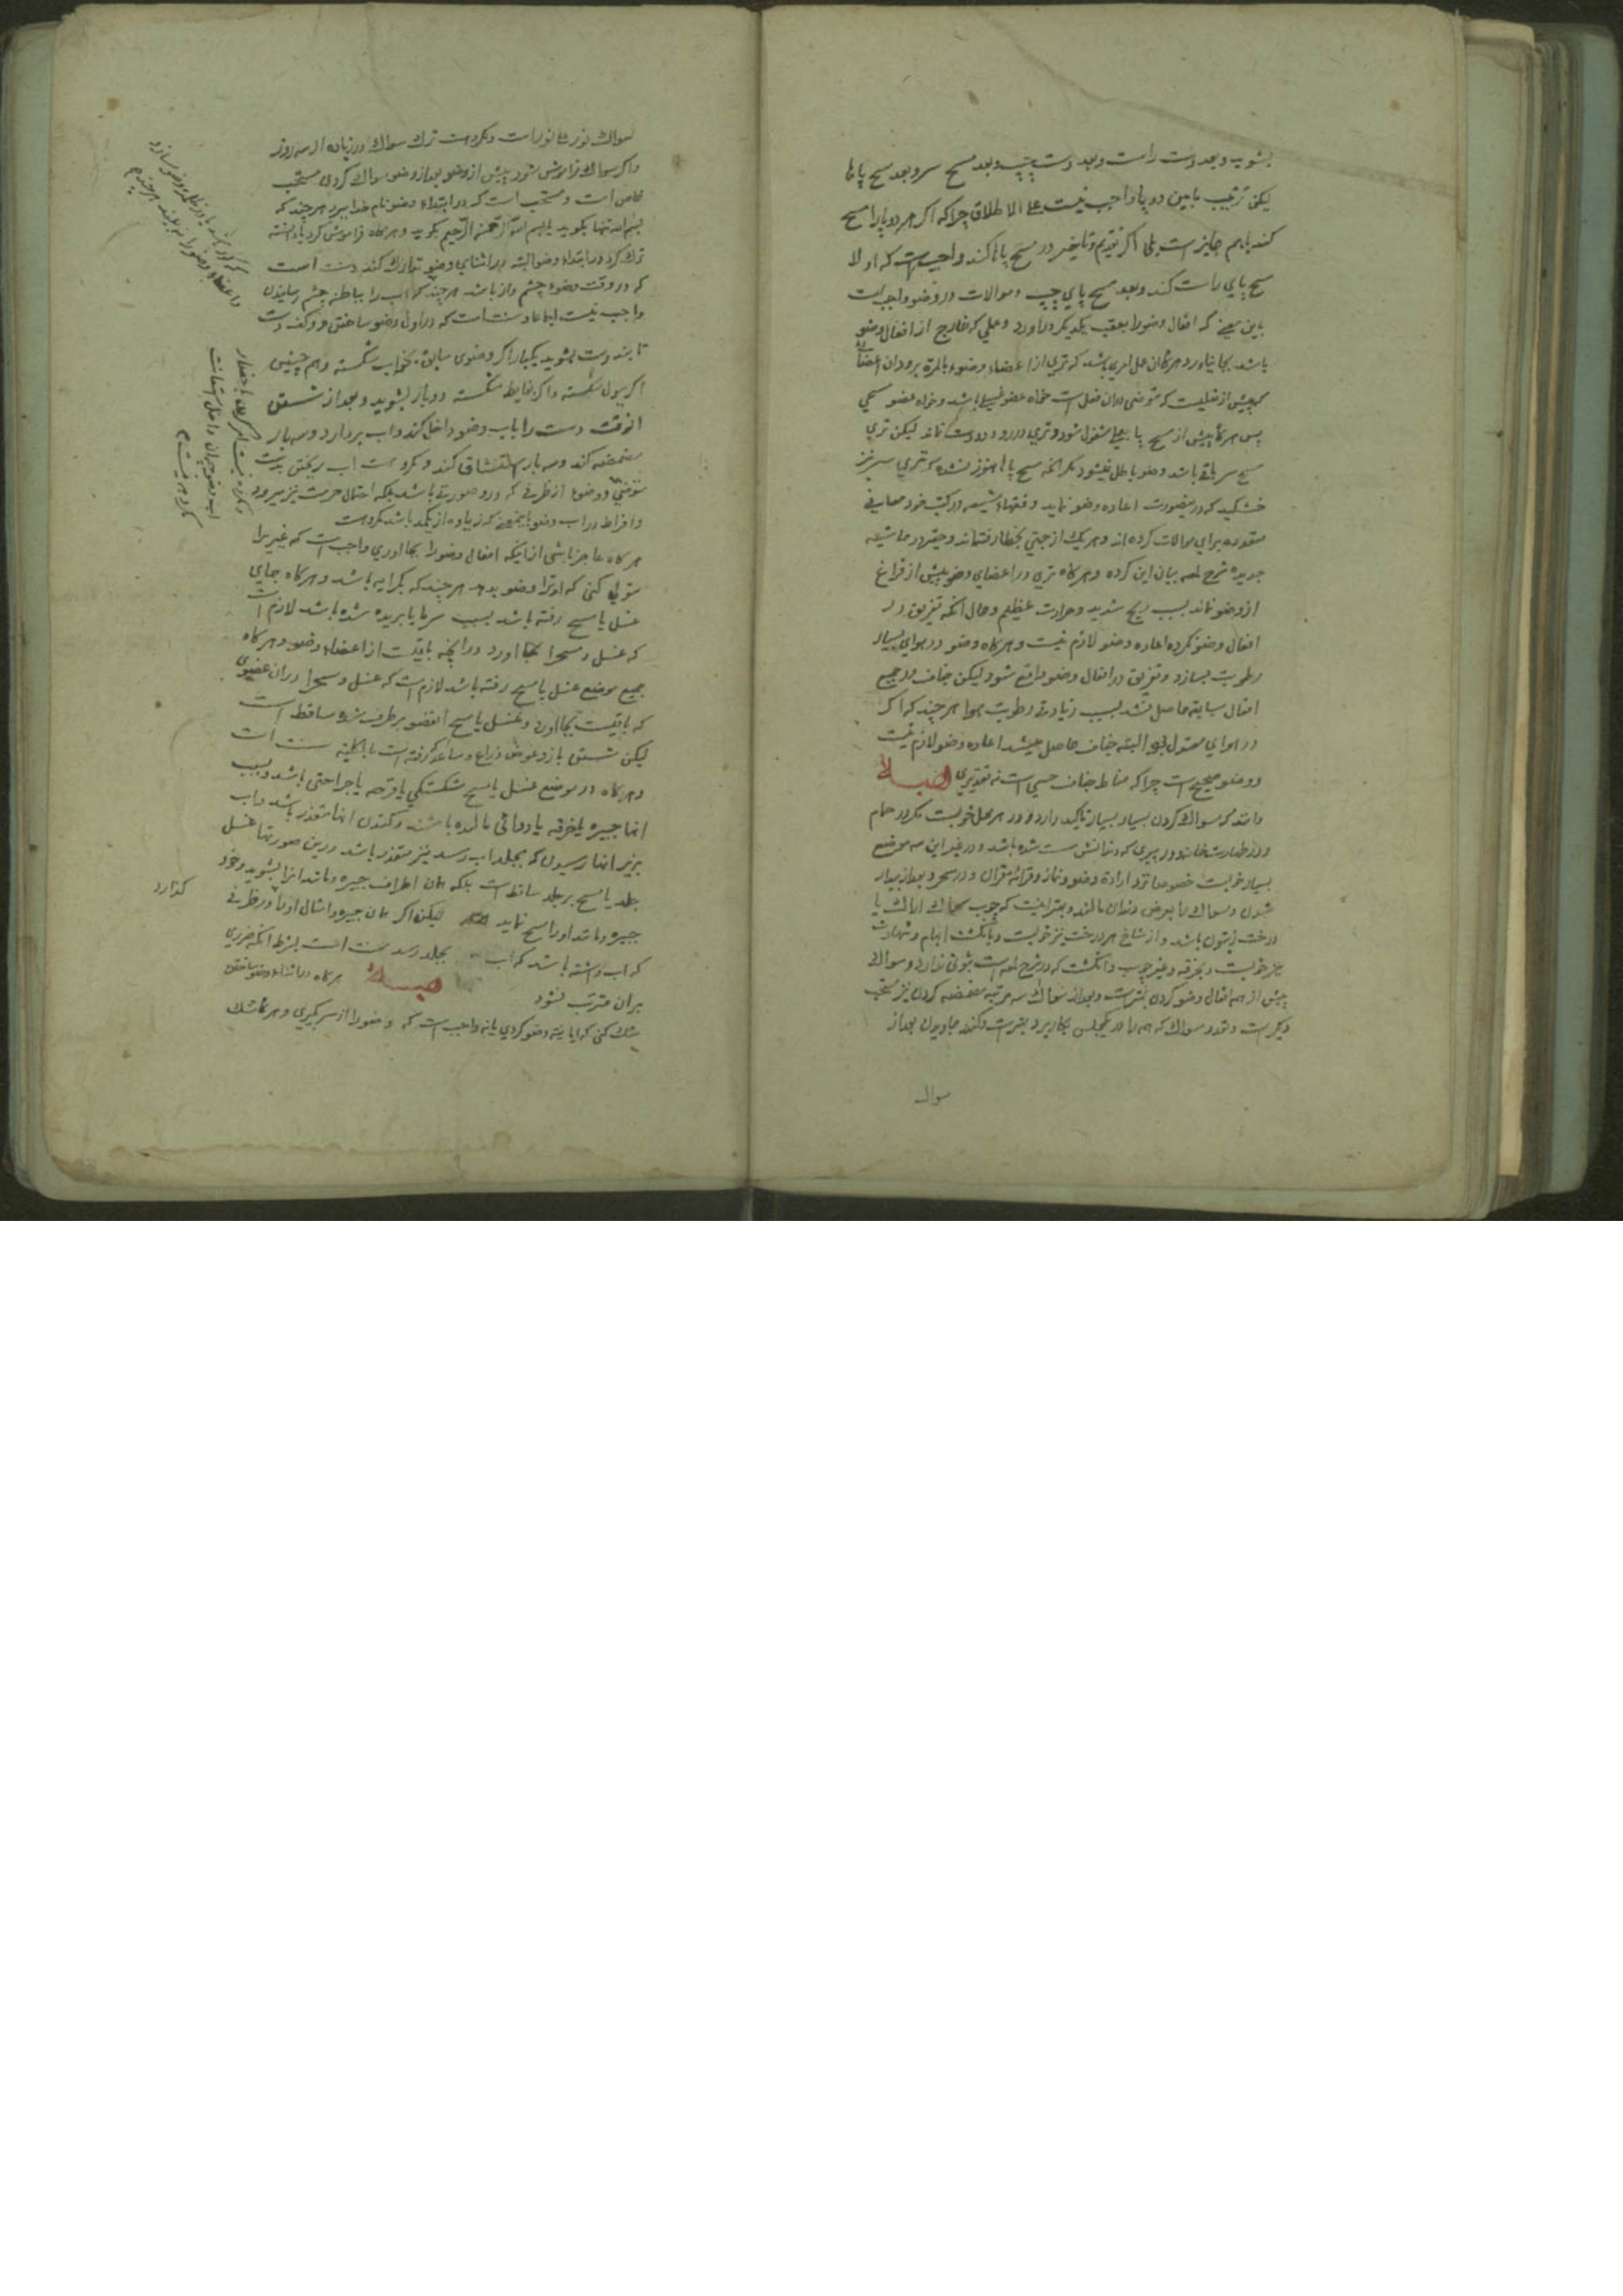 بشوید و بعد دست راست و بعد دست چپ و بعد مسح سر و بعد مسح پاها
لیکن ترتیب مابین دو پا واجب نیست علی الاطلاق چرا که اکر هر دو پا را مسح
کند باهم جایز است بلی اکر تقدیم و تاخیر در مسح پاها کند واجب است که اولا
مسح پای راست کند و بعد مسح پای چپ و موالات در وضو واجب است
باین معنی که افعال وضو را بعقب یکدیکر دراورد و عملی که خارج از افعال وضو
باشد بجا نیاورد
پس هرکاه پیش از مسح پا بعملی مشغول شود و تری در رو و دو دست نماند لیکن تری
مسح سر باقی باشد وضو باطل نمیشود مکر انکه مسح پاها هنوز نشده که تری سر نیز
خشکید که درینصورت اعاده وضو نماید و فقهاء شیعه در کتب خود معانی
متعدده برای موالات کرده اند و هر یک از جهتی بخطا رفته اند و حقیر در حاشیه
جدیده شرح لمعه بیان این کرده و هرکاه تری در اعضای وضو پیش از فراغ
از وضو نماند بسبب ریح شدید و حرارت عظیم و حال انکه تفریق در
افعال وضو نکرده اعاده وضو لازم نیست و هرکاه وضو در هوای بسیار
رطوبت بسازد و تفریق در افعال وضو واقع شود لیکن جفاف در جمیع
افعال سابقه حاصل نشد بسبب زیادتی رطوبت هوا هر چند که اکر
در هوای معتدل بود البته جفاف حاصل میشد اعاده وضو لازم نیست
و وضو صحیح است چرا که مناط جفاف حسی است نه تقدیری
دانند که مسواک کردن بسیار بسیار تاکید دارد و در هر محل خوبست مکر در حمام
و در طهارت خانه و در پیری که دندانش سست شده باشد و در غیر این سه موضع
بسیار خوبست خصوصا نزد اراده وضو و نماز و قرائة قران و در سحر و بعد از بیدار
شدن و مسواک را بعرض دندان مالند و بهتر اینست که چوب مسواک اراک یا
درخت زیتون باشد و از شاخ هر درخت نیز خوبست و بانکشت ابهام و شهادت
نیز خوبست و بخرقه و غیر چوب و انکشت که در شرح لمعه است ثبوتی ندارد و مسواک
پیش از همه افعال وضو کردن بهتر است و بعد از مسواک سه مرتبه مضمضه کردن نیز مستحب
دیکر است و تعدد مسواک که همه را در یکمجلس بکار برد بهتر است
سواک
مسواک نور علی نور است و مکروهست ترک مسواک در زیاده از سه روز
و اکر مسواک فراموش شود پیش از وضو بعد از وضو مسواک کردن مستحب
خاص است و مستحب است که در ابتداء وضو نام خدا ببرد هر چند که
بسم الله تنها بکوید یا بسم الله الرحمن الرحیم بکوید و هرکاه فراموش کرد یا دانسته
ترک کرد در ابتداء وضو البته در اثنای وضو تدارک کند و سنت است
که در وقت وضوء چشم واز باشد هر چند که اب را بباطن چشم رسانیدن
واجب نیست اجماعا و سنت است که در اول وضو ساختن دو کف دست
تا بند دست بشوید یکبار اکر وضوی سابق بخواب شکسته و هم چنین
اکر ببول شکسته و اکر بغایط شکسته دو بار بشوید و بعد از شستن
انوقت دست را باب وضو داخل کند و اب بردارد و سه بار
مضمضه کند و سه بار استنشاق کند و مکروهست اب ریختن بدست
متوضی و وضوء از ظرفی که درو صورتی باشد بلکه احتمال حرمت نیز میرود
و افراط در اب وضو باینمعنی که زیاده از یکمد باشد مکروهست
هرکاه عاجز باشی از اینکه افعال وضو را بجا اوری واجب است که غیریرا
متولی کنی که او ترا وضو بدهد هر چند که بکرایه باشد و هرکاه جای
غسل یا مسح رفته باشد بسبب سرما یا بریده شده باشد لازم است
که غسل و مسح را بجا اورد در انچه باقیست از اعضاء وضو و هرکاه
جمیع موضع غسل یا مسح رفته باشد لازم است که غسل و مسح را در ان عضوی
که باقیست بجا اورد و غسل یا مسح انعضو برطرف شده ساقط است
لیکن شستن بازو عوض ذراع و ساعد که رفته است بالکلیه سنت است
و هرکاه در موضع غسل یا مسح شکستکی یا قرحه یا جراحتی باشد و بسبب
انها جبیره یا خرقه یا دوائی مالیده باشند و کندن انها متعذر باشد و اب
بزیر انها رسیدن که بجلد اب رسد نیز متعذر باشد درین صورتها غسل
جلد یا مسح بر جلد ساقط است بلکه همان اطراف جبیره و مانند انرا بشوید و خود
جبیره و مانند او را مسح نماید لیکن اکر همان جبیره و امثال او را در ظرفی
کذارد
که اب داشته باشد که اب بجلد رسد سنت است بشرط انکه ضرری
بران مترتب نشود هرکاه در اثناء وضو ساختن
شک کنی که ایا نیة وضو کردی یا نه واجب است که وضو را از سر بکیری و هرکاه شک